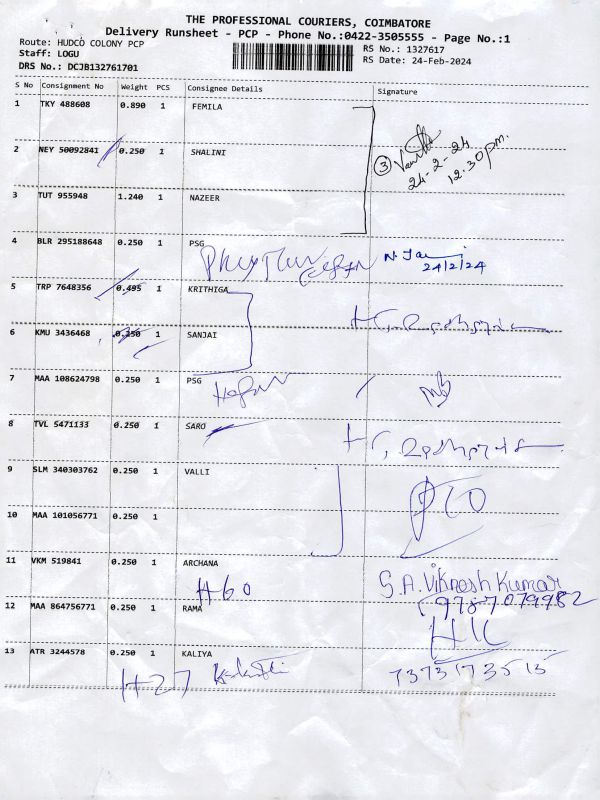 THE PROFESSIONAL COURIERS, COIMBATORE
Delivery Runsheet - PCP - Phone No.:0422-3505555 - Page No.:1
Route: HUDCO COLONY PCP RS No.: 1327617
Staff: LOGU RS Date: 24-Feb-2024
DRS No.: DCJB132761701
S No Consignment No Weight PCS Consignee Details Signature
1 TKY 488608 0.890 1 FEMILA
2 NEY 50092841 0.250 1 SHALINI
③
24-2-24
12.30pm.
3 TUT 955948 1.240 1 NAZEER
4 BLR 295188648 0.250 1 PSG
24/2/24
5 TRP 7648356 0.495 1 KRITHIGA
6 KMU 3436468 0.250 1 SANJAI
7 MAA 108624798 0.250 1 PSG
8 TVL 5471133 0.250 1 SARO
9 SLM 340303762 0.250 1 VALLI
10 MAA 101056771 0.250 1
11 VKM 519841 0.250 1 ARCHANA
H60 S.A.Viknesh Kumar
12 MAA 864756771 0.250 1 RAMA
13 ATR 3244578 0.250 1 KALIYA
H27